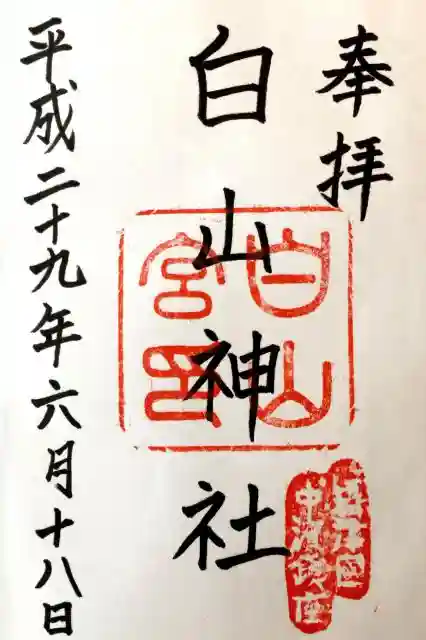 奉拝
白山神社
平成二十九年六月十八日
白山
宮印